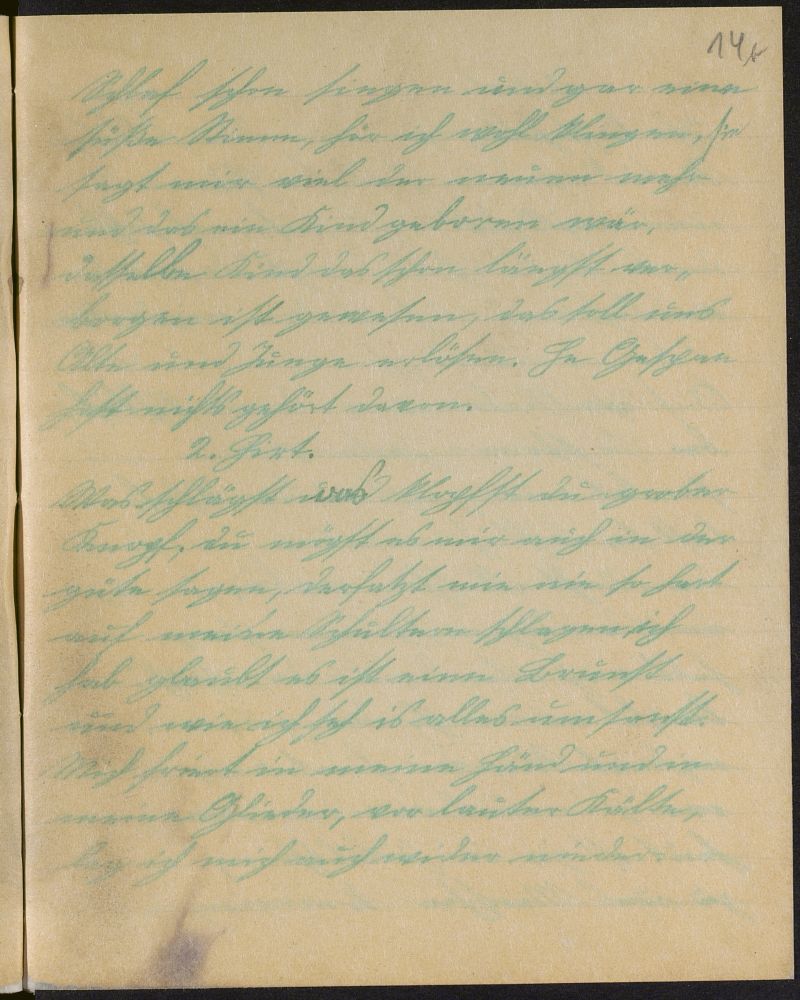 14r
Schlaf schon singen und gar eine
süße Stimm, hör ich wohl klingen, sie
sagt mir viel der neuen mehr
und das ein Kind geboren wär,
dasselbe Kind das schon längst ver„
borgen ist gewesen, das soll uns
Alte und Junge erlösen. He Gespan
hast nichts gehört davon.
2. Hirt.
Was schlägst was klopfst du grober
Knopf, du mögst es mir auch in der
güte sagen, derfatzt mir nie so hart
auf meine Schultern schlagen, ich
hab glaubt es ist eine Brunst
und wie ich seh is alles umsonst.
Mich friert in meine Händ und in
meine Glieder, vor lauter Kälte,
leg ich mich auch wider nieder.